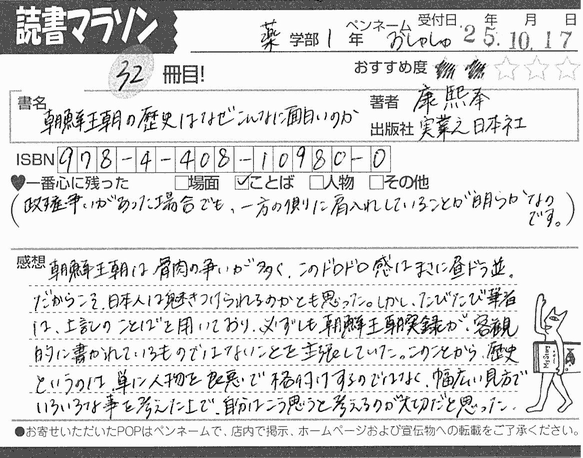 読書マラソン
薬 学部 1 年
ペンネーム おしゃしゅ
受付日. 25年 10月 17日
32 冊目!
おすすめ度 ☆☆☆
書名 朝鮮王朝の歴史はなぜこんなに面白いのか
著者 康熙奉
出版社 実業之日本社
ISBN 978-4-408-10980-0
♥一番心に残った □場面 ☑ことば □人物 □その他
(政権争いがあった場合でも、一方の側に肩入れしていることが明らかなの
です。)
感想 朝鮮王朝は骨肉の争いが多く、このドロドロ感はまさに昼ドラ並。
だからこそ、日本人は魅きつけられるのかとも思った。しかし、たびたび筆者
は、上記のことばを用いており、必ずしも朝鮮王朝実録が、客観
的に書かれているものではないことを主張していた。このことから、歴史
というのは、単に人物を良悪で格付けするのではなく、幅広い見方で
いろいろな事を考えた上で、自分はこう思うと考えるのが大切だと思った.
●お寄せいただいたPOPはペンネームで、店内で掲示、ホームページおよび宣伝物への転載をご了承ください。